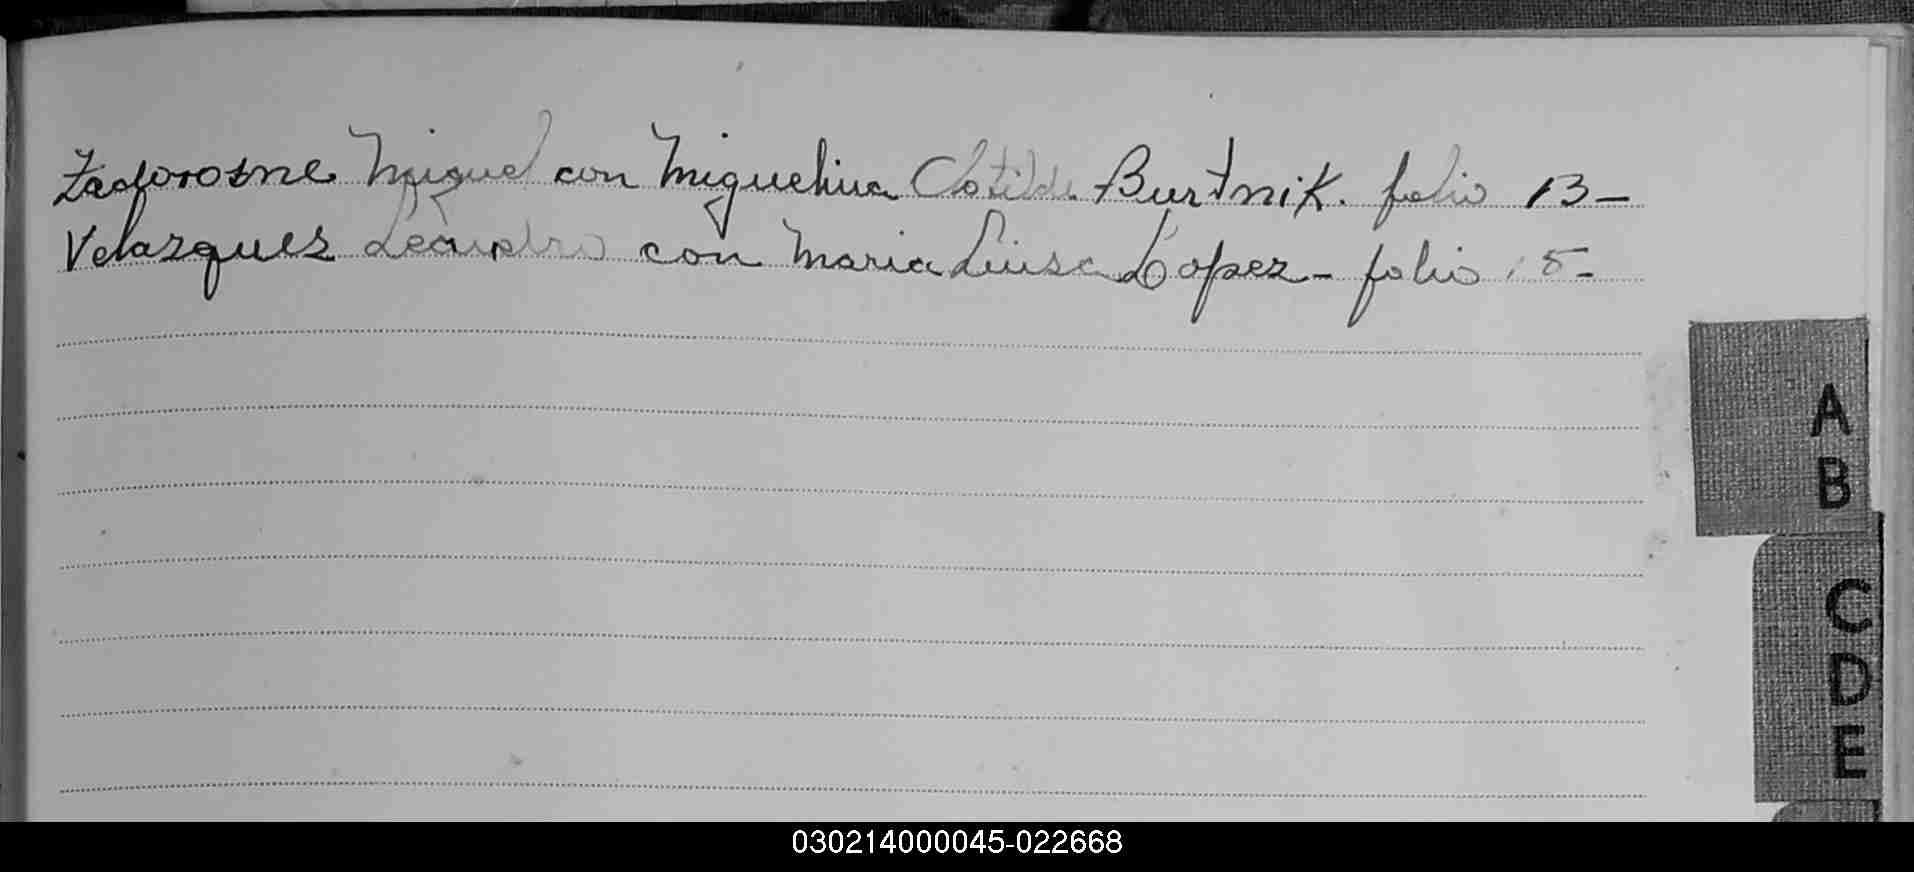 Zadorosne Miguel con Miguelina Clotilde Burtnik. folio 13-
Velazquez Leandro con Maria Luisa Lopez - folio 15-
A
B
C
D
E
030214000045-022668